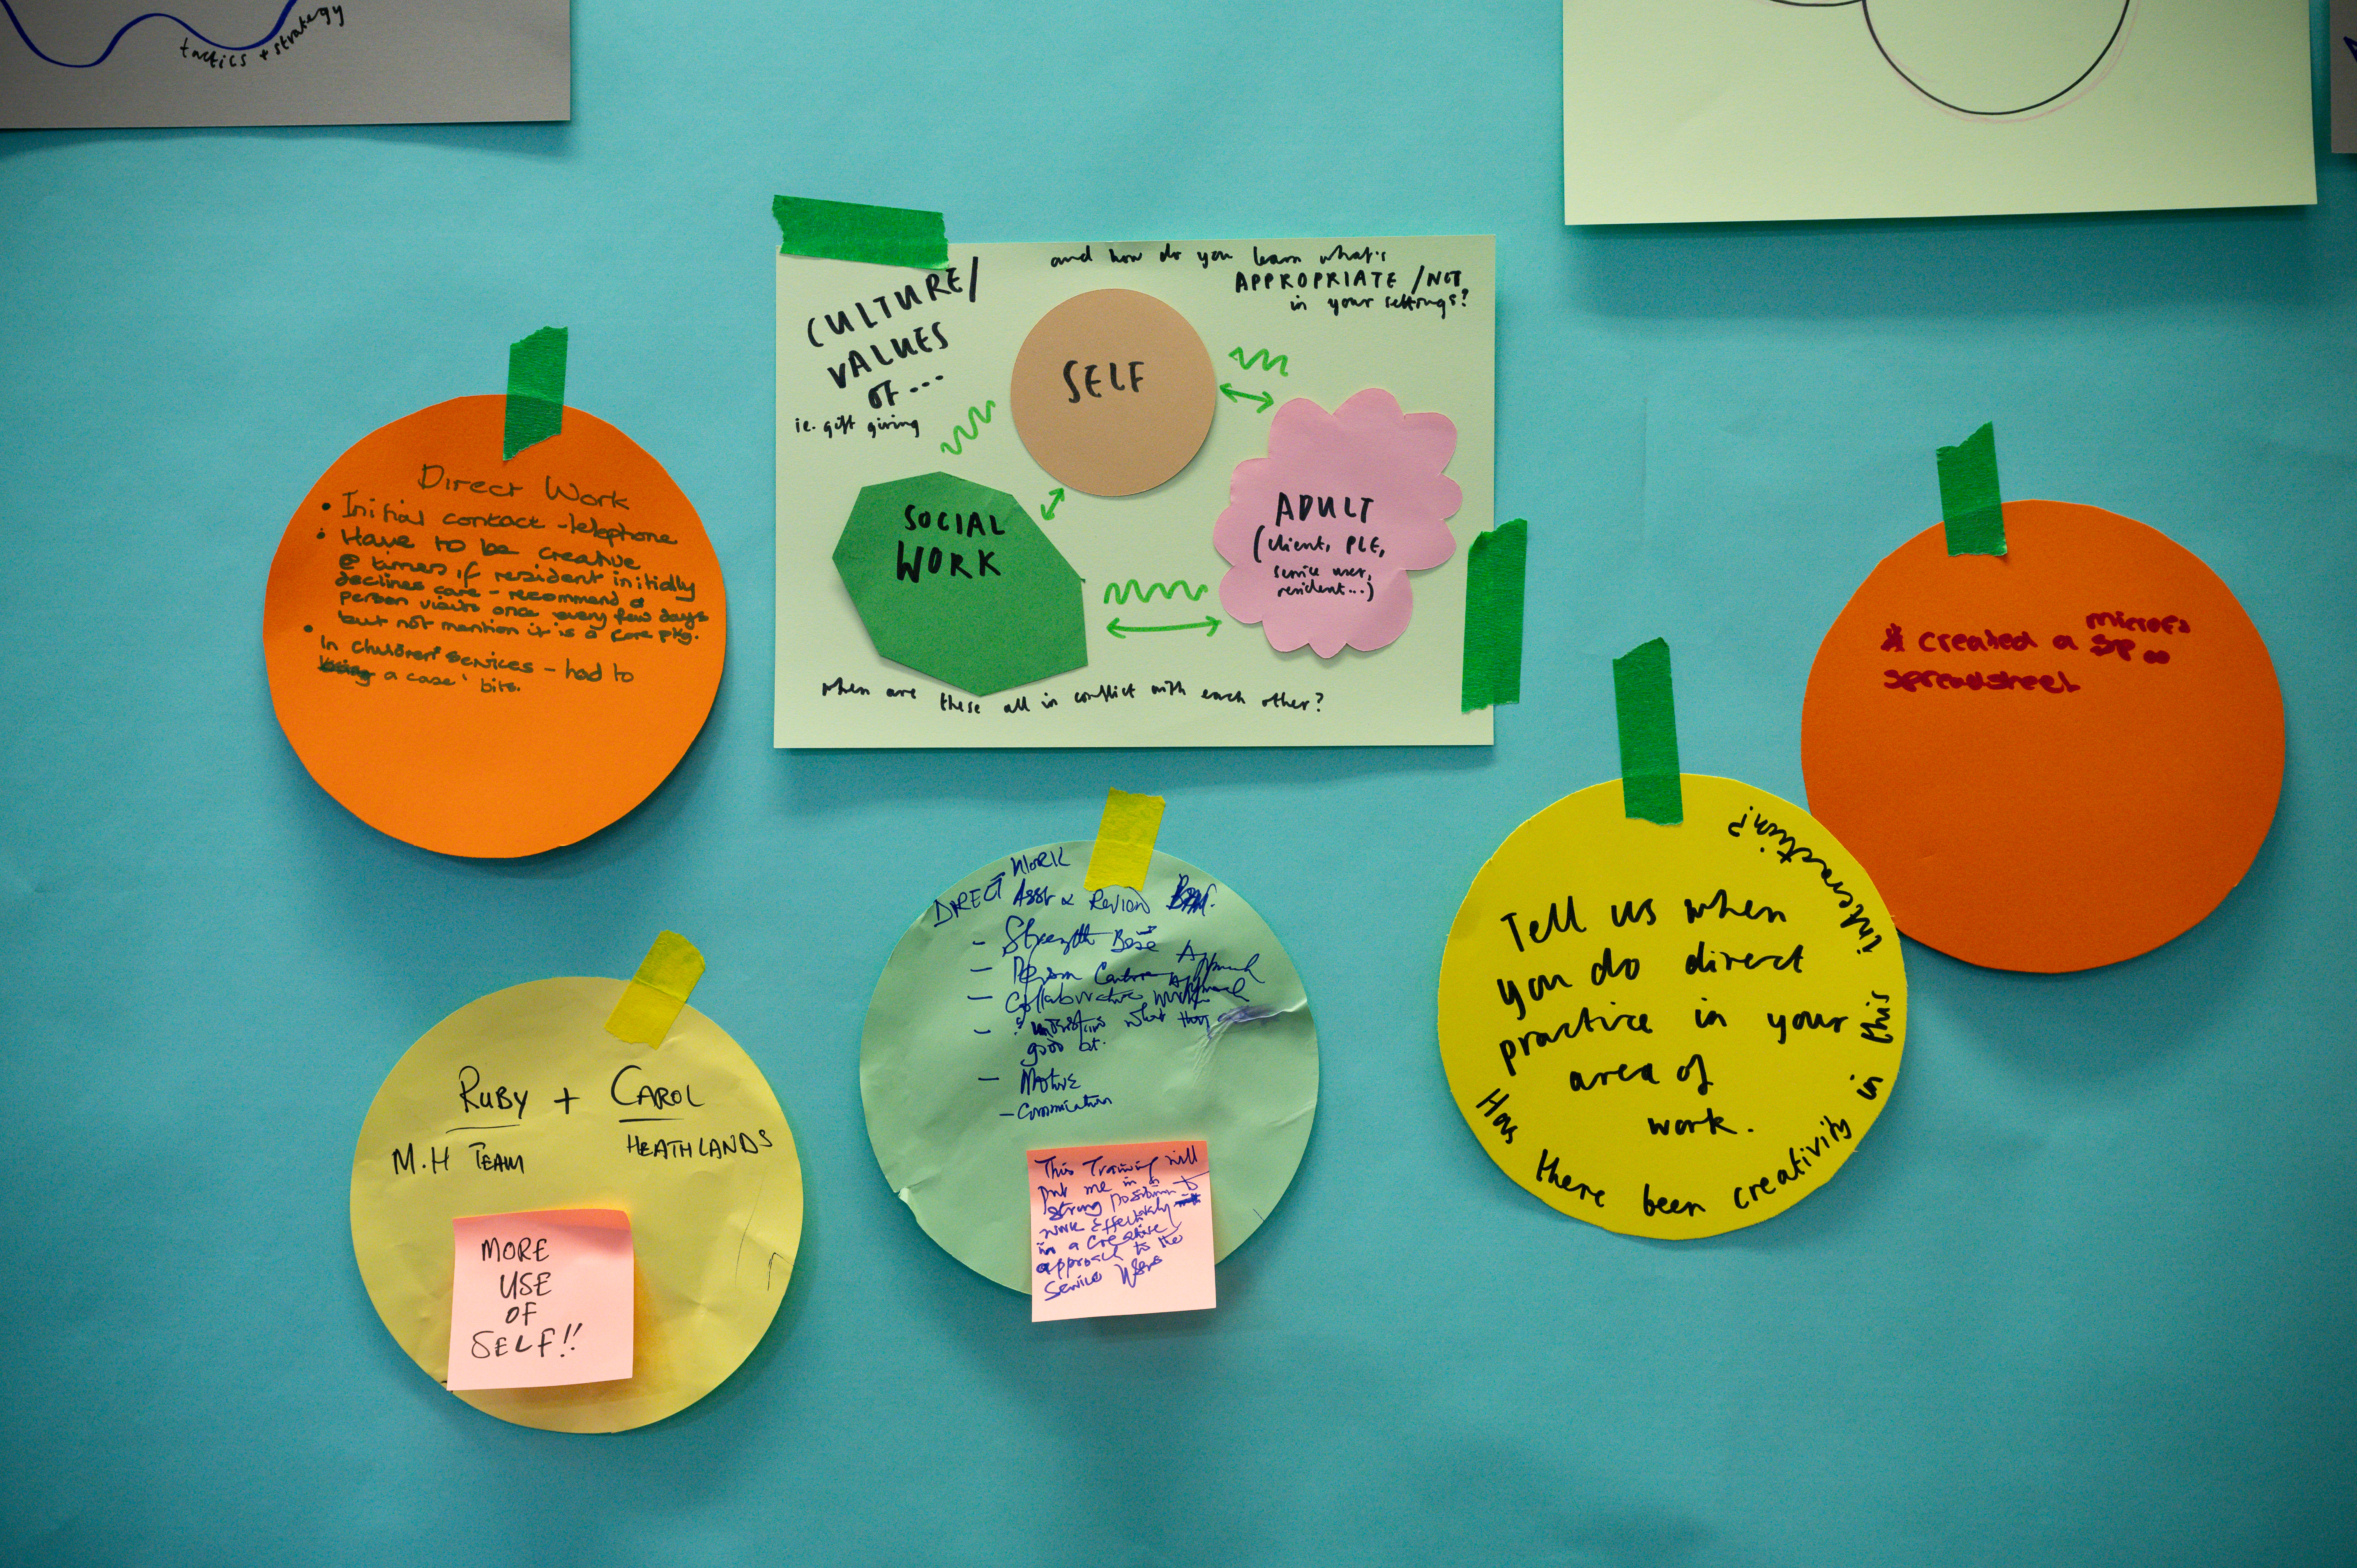 tactics + strategy
and how do you learn what's
APPROPRIATE / NOT
in your settings?
CULTURE/
VALUES
OF...
ie. gift giving
SELF
SOCIAL
WORK
ADULT
(client, PLE,
service user,
resident...)
when are these all in conflict with each other?
Direct Work
• Initial contact - telephone
• Have to be creative
@ times if resident initially
declines care - recommend a
person visits once every few days
but not mention it is a care pkg.
• In children's services - had to
a case' bits.
* created a
spreadsheet
Tell us when
you do direct
practice in your
area of
work.
Has there been creativity in this interaction?
DIRECT WORK
Asst & Review
- Strength Base
- Person Approach
- Collaborative
- what they
good at.
-
- Communication
This Training will
put me in a
strong position to
work effectively
in a creative
approach to the
Service Users
RUBY + CAROL
M.H TEAM HEATHLANDS
MORE
USE
OF
SELF!!